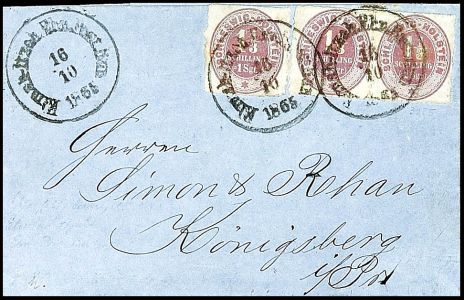 16
10
1865
SCHLESWIG-HOLSTEIN
1⅓
SCHILLING
16
10
1865
SCHLESWIG-HOLSTEIN
1⅓
SCHILLING
SCHLESWIG-HOLSTEIN
1⅓
SCHILLING
Herren
Simon & Rhan
Königsberg
i/Pr